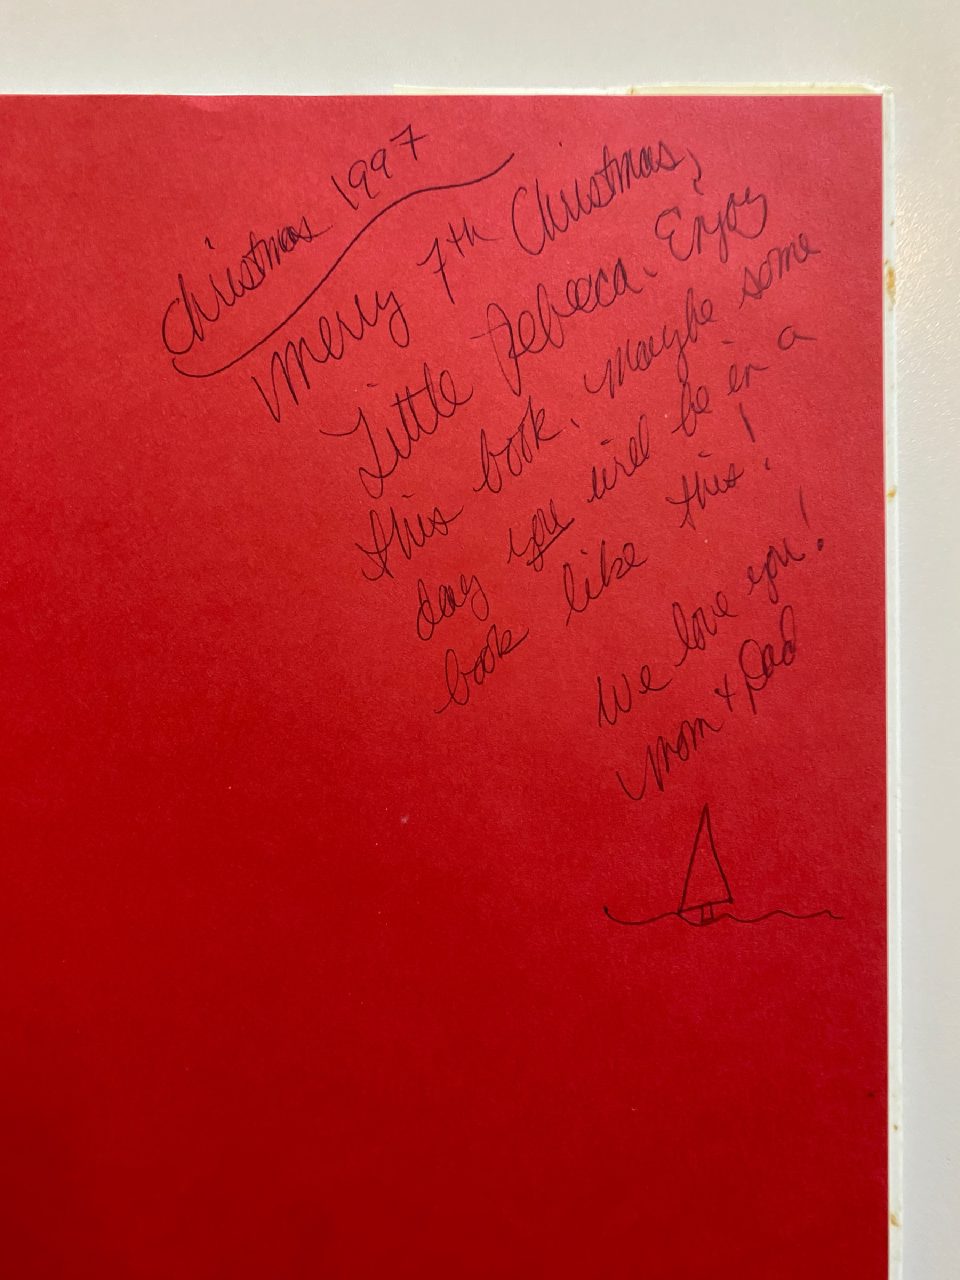 Christmas 1997
Merry 7th Christmas,
Little Rebecca. Enjoy
this book. Maybe some
day you will be in a
book like this!
We love you!
Mom + Dad